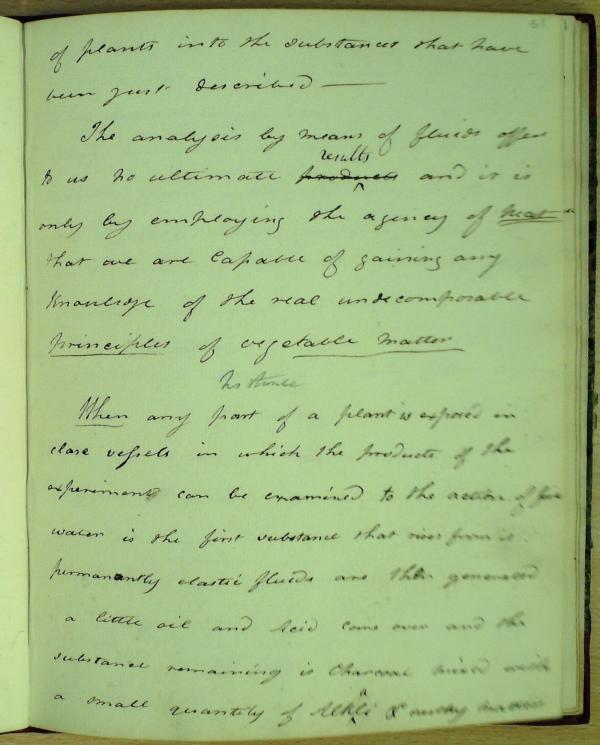 51
of plants into the substances that have
been just described —
The analysis by means of fluids offers
results
to us no ultimate products and it is
only by employing the agency of heat
that we are capable of gaining any
knowledge of the real undecomposable
principles of vegetable matter
When any part of a plant is exposed in
close vessels in which the products of the
experiments can be examined to the action of fire
water is the first substance that rises from it
permanantly elastic fluids are then generated
a little oil and acid come over and the
substance remaining is charcoal mixed with
a small quantity of Alkli & earthy matter